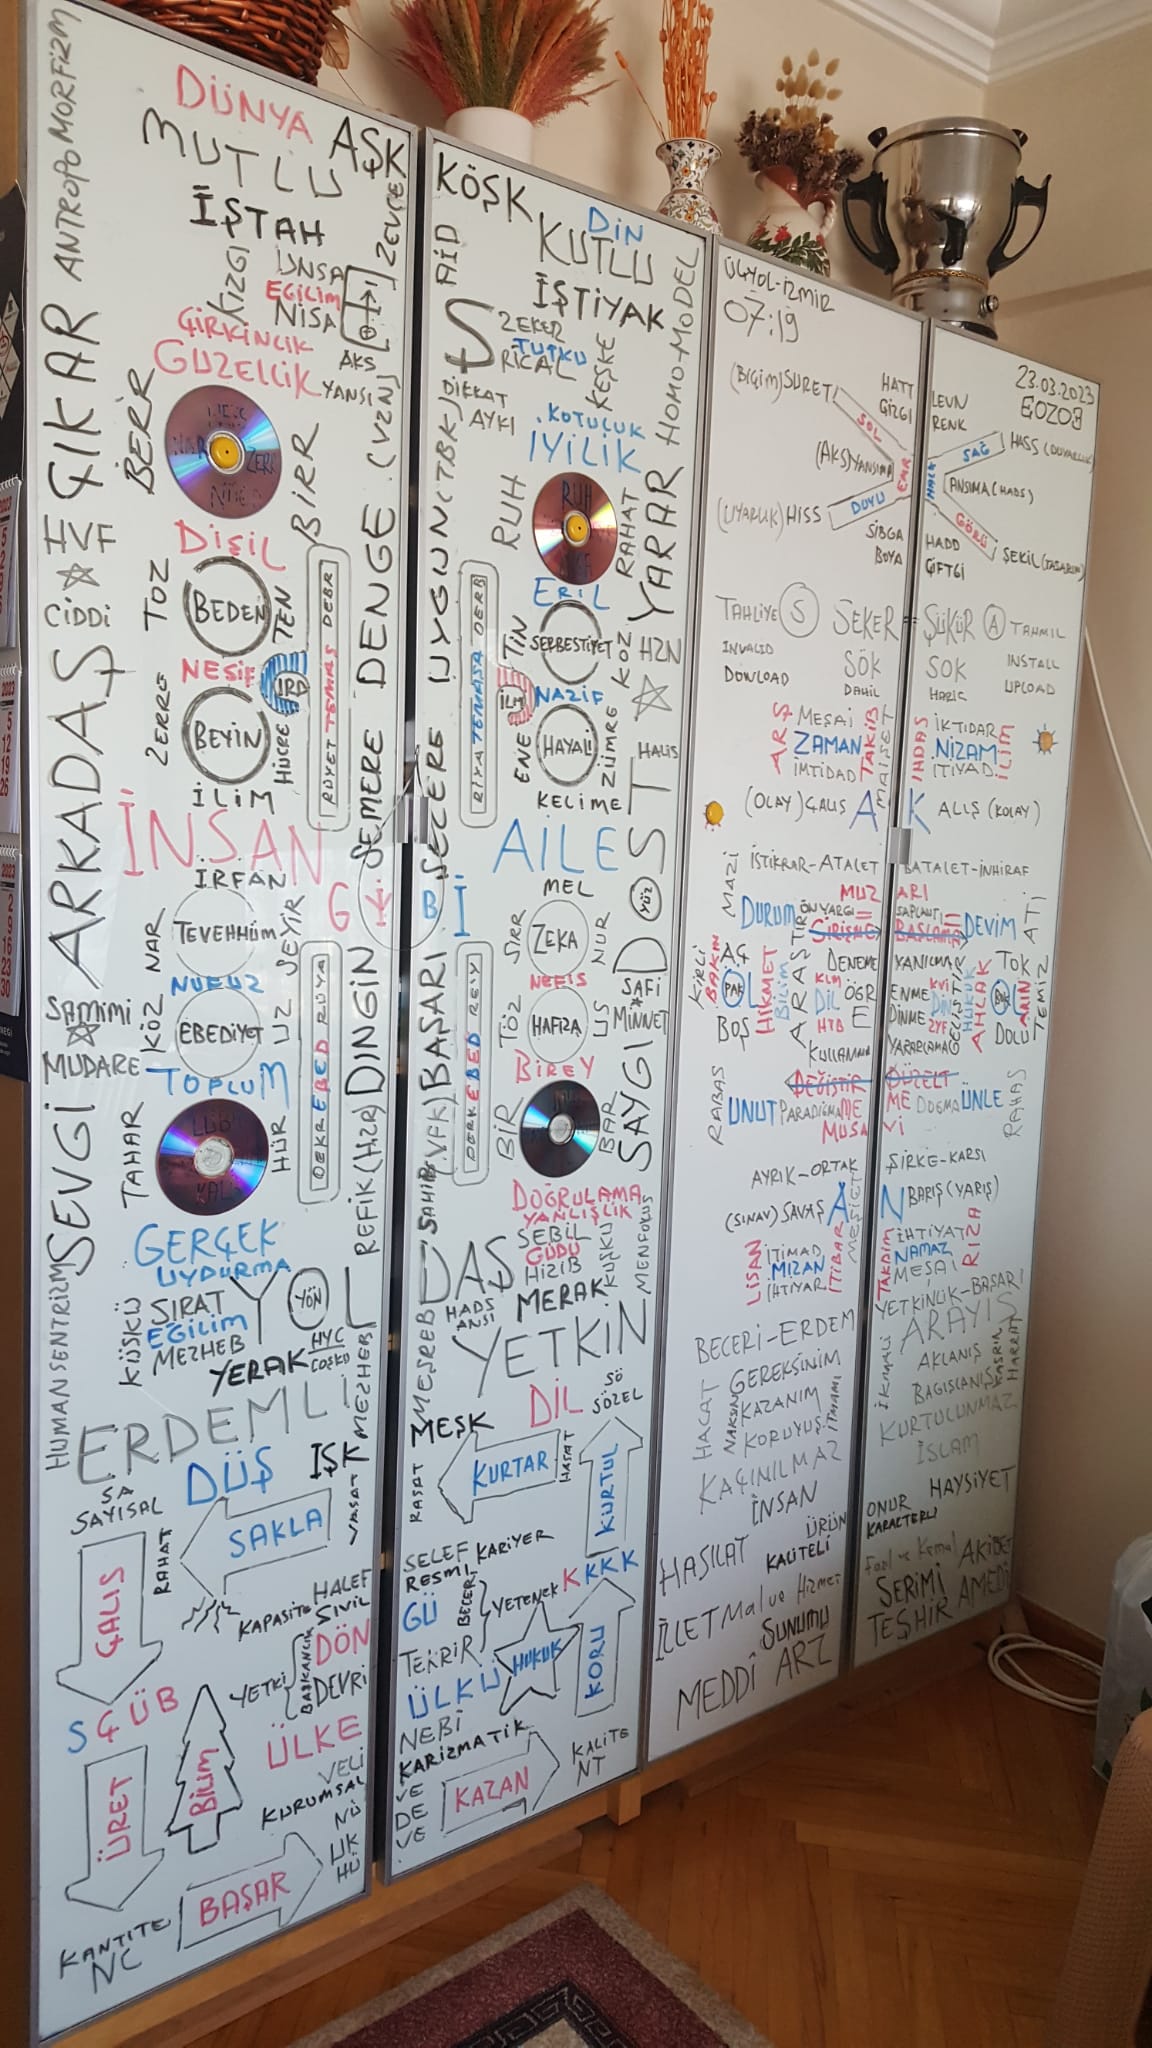 ANTROPOMORFİZM
DÜNYA
MUTLU
AŞK
ZEVÇE
İŞTAH
KIZGI
ÜNSA
EĞİLİM
NİSA
ÇİRKİNLİK
GÜZELLİK
AKS
YANSI
BERR
BİRR
ÇIKAR
CİDDİ
ARKADAŞ
DİŞİL
TOZ
BEDEN
TEN
NESİF
IRD
ZERRE
BEYİN
HÜCRE
İLİM
RÜYET TEMAS DEBR
SEMERE DENGE (VZN)
İNSAN
İRFAN
NAR
TEVEHHÜM
SEYİR
NUFUZ
KÖZ
EBEDİYET
UZ
SAMİMİ
MUDARE
TOPLUM
SEVGİ
TAHAR
HÜR
REFİK (HZR) DİNGİN
HUMANSENTRİZM
GERÇEK
UYDURMA
KÜSKÜ
SIRAT
EĞİLİM
MEZHEB
YOL
YÖN
YERAK
HYC
COŞKU
MEZHEB
ERDEMLİ
DÜŞ
IŞK
SA
SAYISAL
SAKLA
VASAT
RAHAT
ÇALIŞ
KAPASİTE
HALEF
SİVİL
DÖN
DEVRİ
YETKİ
BAŞKANLIK
SÇÜB
ÜLKE
ÜRET
BİLİM
VELİ
KURUMSAL
NÜ
ÜK
HÜ
BAŞAR
KANTİTE
NC
KÖŞK
DİN
KUTLU
AİD
İŞTİYAK
ZEKER
TUTKU
RİCAL
KEŞKE
DİKKAT
AYKI
KOTULUK
İYİLİK
HOMO-MODEL
RUH
RAHAT
YARAR
ERİL
TİN
SERBESTİYET
KOZ
HZN
NAZİF
İLM
ENE
HAYALİ
ZÜMRE
HALİS
KELİME
RİYA TEMAŞA DERB
SECERE UYGUN (TBK)
AİLE
MEL
GYBİ
SIRR
ZEKA
NUR
YÜZ
NEFİS
TÖZ
HAFIZA
US
SAFİ
MİNNET
BİREY
BİR
BAR
SAYGI
BAŞARI
DOĞRULAMA
YANLIŞLIK
SEBİL
GÜDÜ
HİZİB
KUŞKU
MERAK
DAŞ
HADS
ANSI
MEŞREB
YETKİN
DİL
SÖ
SÖZEL
MEŞK
KURTAR
HASAT
KURTUL
RASAT
SELEF
RESMİ
KARİYER
GÜ
BECERİ
YETENEK
KKKK
TEKRİR
HUKUK
KORU
ÜLKÜ
NEBİ
KARİZMATİK
VE
DE
VE
KAZAN
KALİTE
NT
ÜÇYOL-İZMİR
07:19
(BİÇİM) SURET
HATT
ÇİZGİ
SOL
(AKS) YANSIMA
DUYU
(UYARLIK) HİSS
SİBGA
BOYA
TAHLİYE S ŞEKER
INVALID
DOWLOAD
SÖK
DAHİL
ARŞ
MEŞAİ
ZAMAN
İMTİDAD
TAKİB
(OLAY) ÇALIŞ A
İSTİKRAR-ATALET
MAZİ
MUZ
DURUM
ÖNYARGI
GİRİŞME
KİRLİ
BAKIN
AÇ
HİKMET
BİLİM
ARAŞTIR
DENEME
KLM
DİL
HTB
ÖĞR
E
BOŞ
KULLANMA
DEĞİŞTİR
RABAS
UNUT
PARADİGMA
ME
MUSA
AYRIK-ORTAK
(SINAV) SAVAŞ A
LİSAN
İTİMAD
MİZAN
İHTİYAR
İTİBAR
BECERİ-ERDEM
HACAT
GEREKSİNİM
KAZANIM
KORUYUŞ
KAÇINILMAZ
İNSAN
ÜRÜN
HASILAT
KALİTELİ
İLLET Mal ve Hizmet
SUNUMU
MEDDİ ARZ
23.03.2023
LEVN
RENK
SAĞ
HASS (DUYARLIK)
HALK
ANSIMA (HADS)
GÖRÜ
HADD
ÇİFTGİ
ŞEKİL (TASARIM)
ŞÜKÜR A TAHMİL
SOK
HARİC
INSTALL
UPLOAD
İHDAS
İKTİDAR
NİZAM
İTİYAD
İLİM
K ALIŞ (KOLAY)
BATALET-İNHİRAF
ARI
SAPLANTI
BAŞLAMA
DEVİM
ATİ
YANILMA
TOK
ENME
DİNME
KVİ
DİN
ZYF
GELİŞTİR
HUKUK
AHLAK
DOLU
TEMİZ
YARARLAMA
DÜZELT
ME
Vİ
DOGMA
ÜNLE
RAHAS
ŞİRKE-KARSI
N BARIŞ (YARIŞ)
TAKDİM
İHTİYAT
NAMAZ
MESAİ
RIZA
YETKİNLİK-BAŞARI
ARAYIŞ
AKLANIŞ
BAGISLANIŞ
KURTULUNMAZ
İSLAM
HAYSİYET
ONUR
KARAKTERLİ
AKİBET
SERİMİ
TEŞHİR AMEDİ